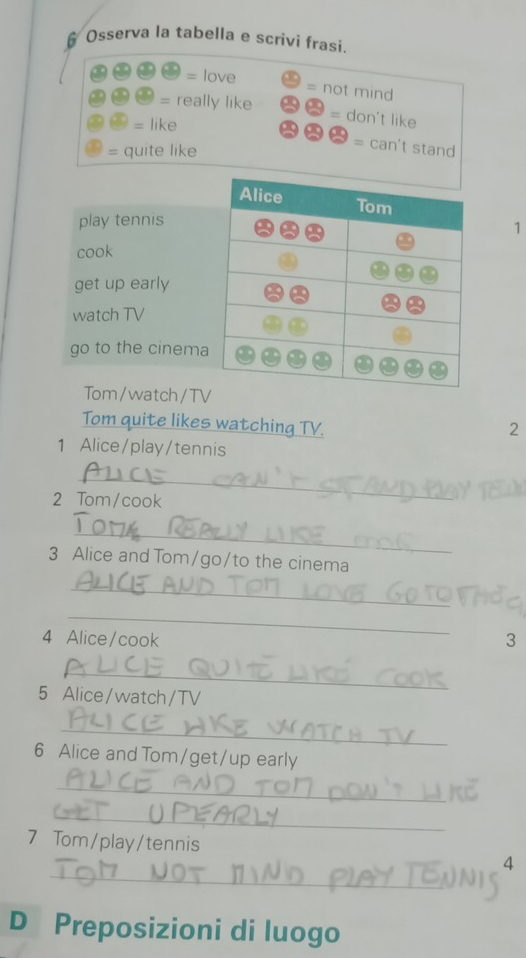 6 Osserva la tabella e scrivi frasi.
= love
= not mind
= really like
= don't like
= like
= can't stand
= quite like
Alice Tom
play tennis
cook
get up early
watch TV
go to the cinema
1
Tom/watch/TV
Tom quite likes watching TV.
2
1 Alice/play/tennis
ALICE CAN'T STAND PLAY
2 Tom/cook
TOM REALLY LIKE
3 Alice and Tom/go/to the cinema
ALICE AND TOM LOVE GO TO
3
4 Alice/cook
ALICE QUITE LIKE COOK
5 Alice/watch/TV
ALICE LIKE WATCH TV
6 Alice and Tom/get/up early
ALICE AND TOM DON'T LIKE
GET UP EARLY
7 Tom/play/tennis
TOM NOT MIND PLAY TENNIS
4
D Preposizioni di luogo